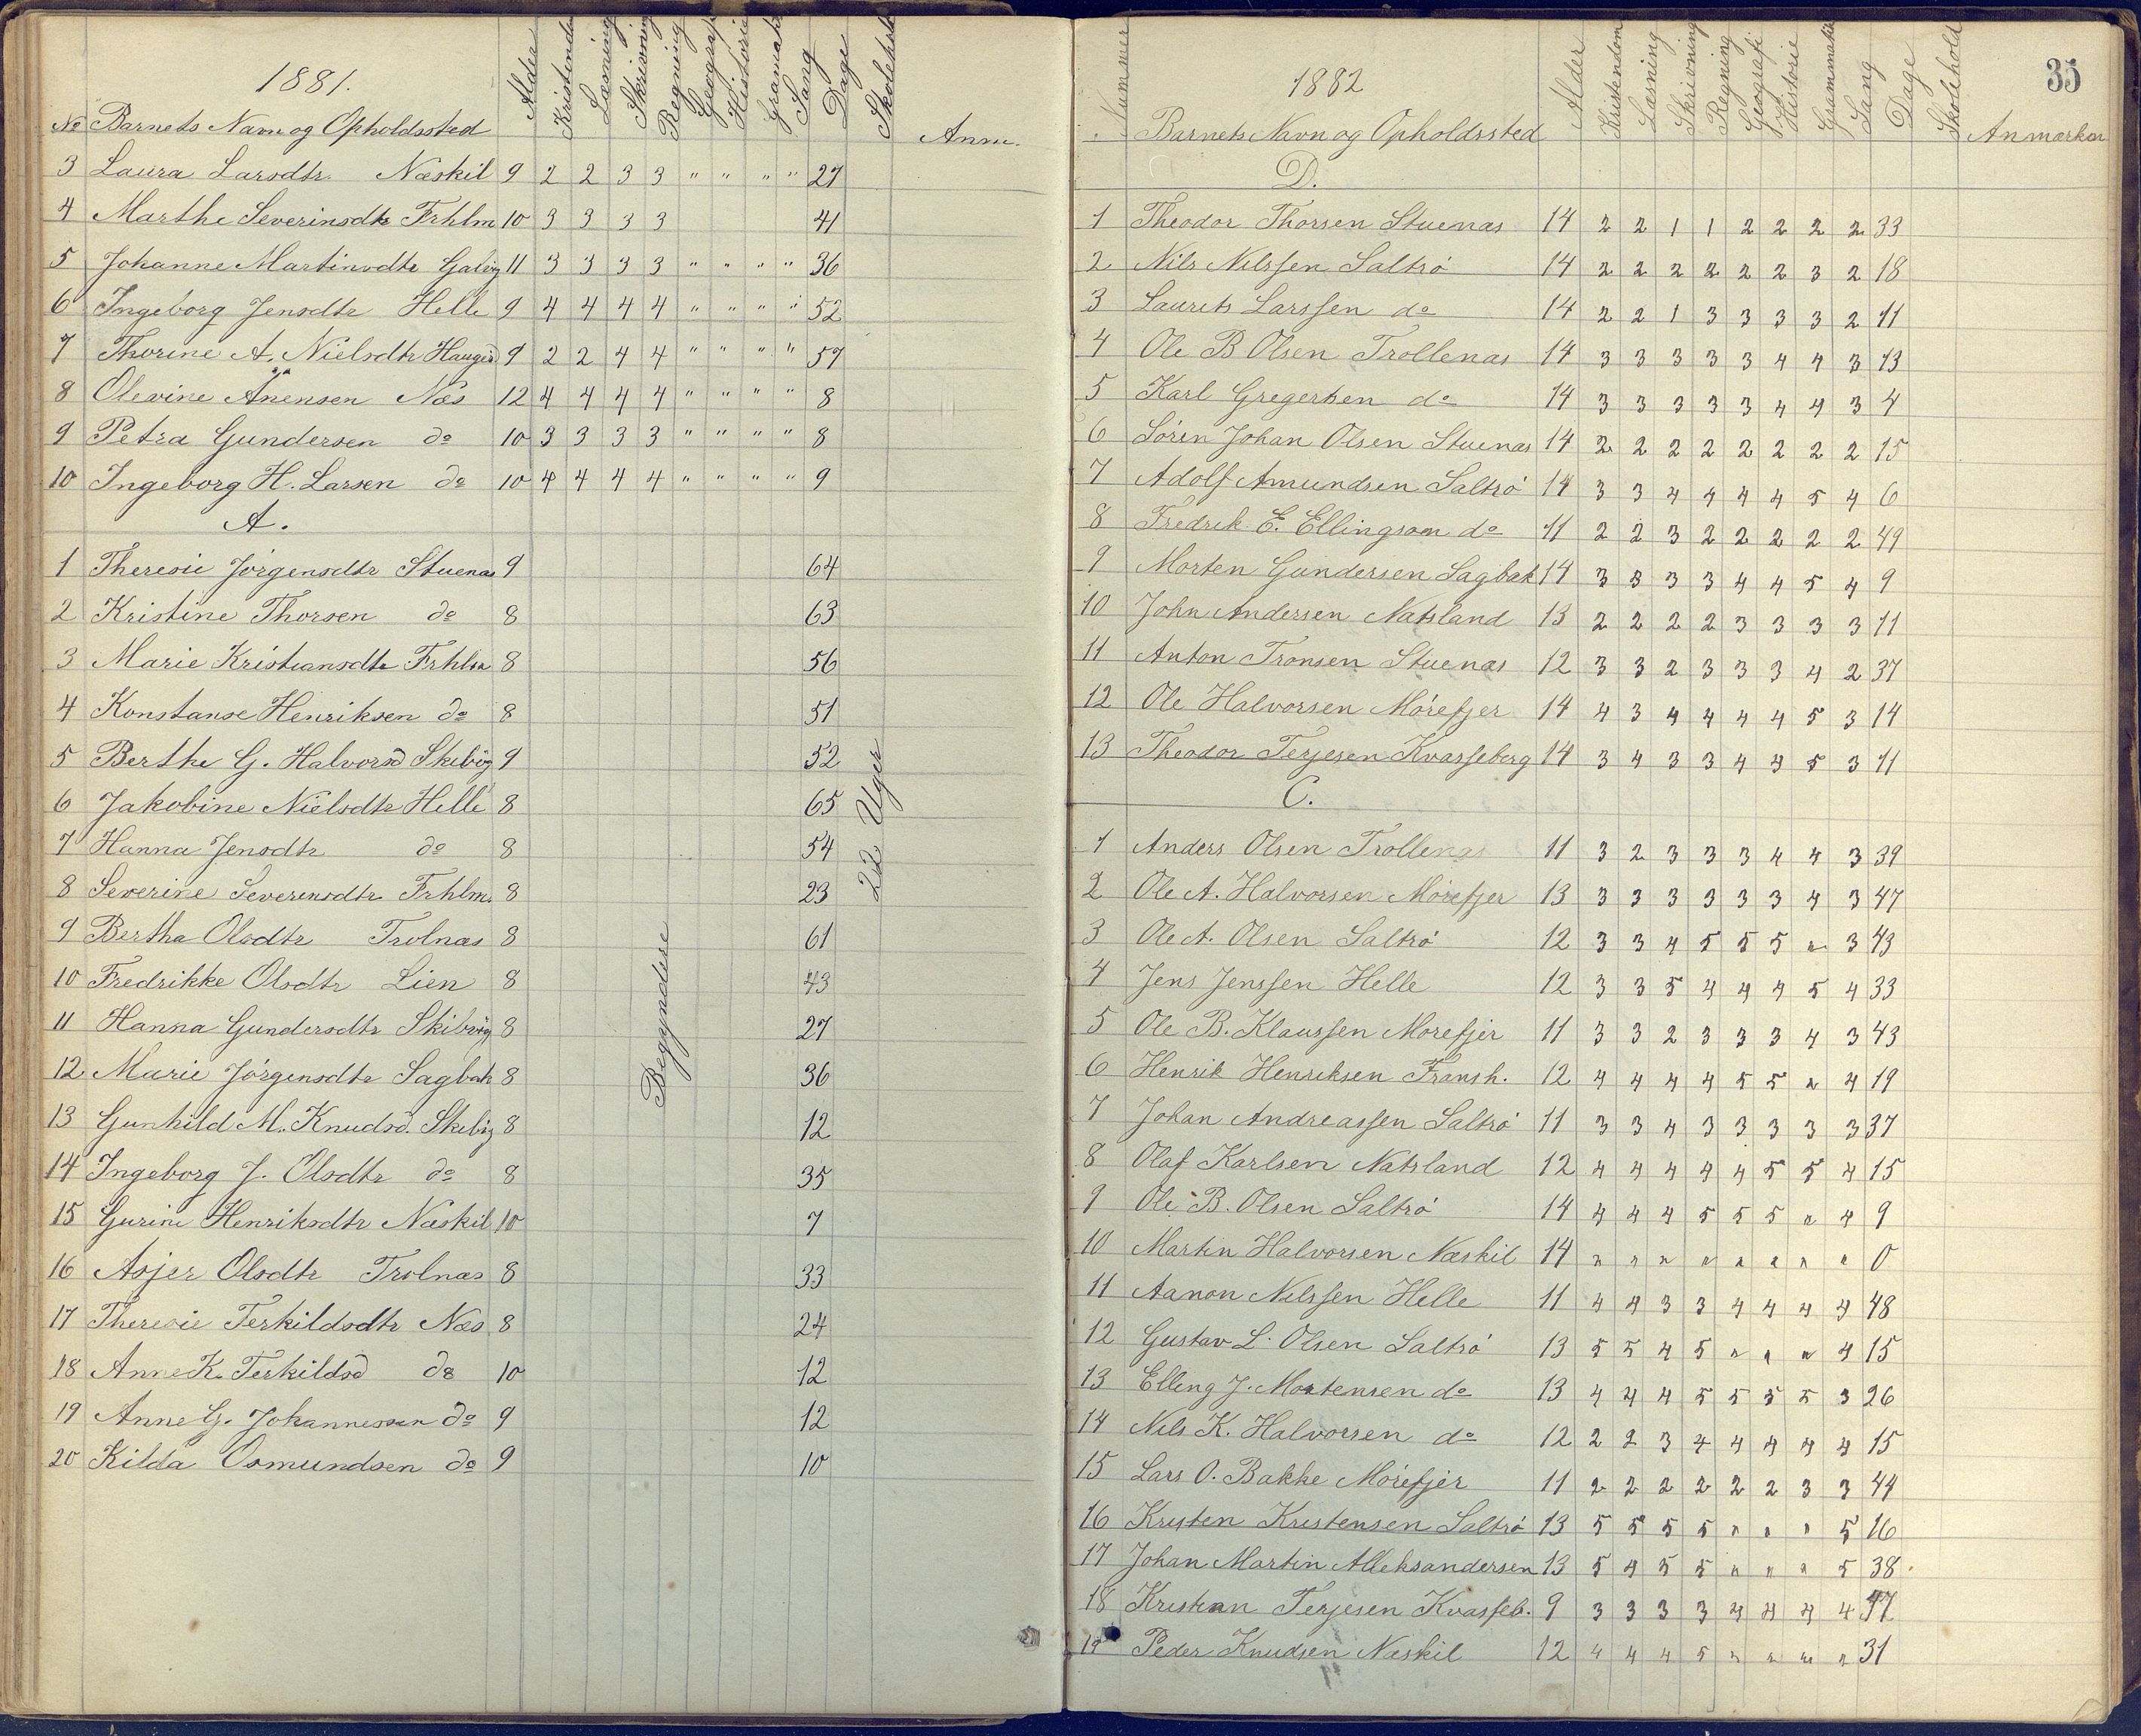 1881.
No Barnets Navn og Opholdssted Alder Kristendom Læsning Skrivning Regning Geografi Historie Gramatik Sang Dage Skolehold Anm.
3 Laura Larsdtr. Næskil 9 2 2 3 3 " " " " 27
4 Marthe Severinsdtr Frhlm 10 3 3 3 3 41
5 Johanne Martinsdtr Galvig 11 3 3 3 3 " " " " 36
6 Ingeborg Jensdtr Helle 9 4 4 4 4 " " " " 52
7 Thorine A. Nielsdtr Hauged 9 2 2 4 4 " " " " 57
8 Olevine Anensen Næs 12 4 4 4 4 " " " " 8
9 Petra Gundersen do 10 3 3 3 3 " " " " 8
10 Ingeborg H. Larsen do 10 4 4 4 4 " " " " 9
A.
1 Theresie Jörgensdtr Stuenæs 9 64
2 Kristine Thorsen do 8 63
3 Marie Kristiansdtr Frhlm 8 56
4 Konstanse Henriksen do 8 51
5 Berthe G. Halvorsd Skibvig 9 52
6 Jakobine Nielsdtr Helle 8 65
7 Hanna Jensdtr do 8 54
8 Severine Severinsdtr Frhlm. 8 23
9 Bertha Olsdtr Trolnæs 8 61
10 Fredrikke Olsdtr Lien 8 43
11 Hanna Gundersdtr Skibvig 8 27
12 Marie Jörgensdtr Sagbak 8 36
13 Gunhild M. Knudsd. Skibvig 8 12
14 Ingeborg J. Olsdtr do 8 35
15 Gurine Henriksdtr Næskil 10 7
16 Asjer Olsdtr Trolnæs 8 33
17 Theresie Terkildsdtr Næs 8 24
18 Anne K. Terkildsd do 10 12
19 Anne G. Johannessen do 9 12
20 Kilda Osmundsen do 9 10
Begyndere
22 Uger
35
1882
Nummer Barnets Navn og Opholdssted Alder Kristendom Læsning Skrivning Regning Geografi Historie Grammatik Sang Dage Skolehold Anmærkn
D.
1 Theodor Thorsen Stuenæs 14 2 2 1 1 2 2 2 2 33
2 Nils Nilssen Saltrö 14 2 2 2 2 2 2 3 2 18
3 Laurits Larssen do 14 2 2 1 3 3 3 3 2 11
4 Ole B Olsen Trollenæs 14 3 3 3 3 3 4 4 3 13
5 Karl Gregersen do 14 3 3 3 3 3 4 4 3 4
6 Sören Johan Olsen Stuenæs 14 2 2 2 2 2 2 2 2 15
7 Adolf Amundsen Saltrö 14 3 3 4 4 4 4 5 4 6
8 Fredrik E. Ellingsøn do 11 2 2 3 2 2 2 2 2 49
9 Morten Gundersen Sagbak 14 3 3 3 3 4 4 5 4 9
10 John Andersen Natsland 13 2 2 2 2 3 3 3 3 11
11 Anton Tronsen Stuenæs 12 3 3 2 3 3 3 4 2 37
12 Ole Halvorsen Mörefjer 14 4 3 4 4 4 4 5 3 14
13 Theodor Terjesen Kvasseberg 14 3 4 3 3 4 4 5 3 11
C.
1 Anders Olsen Trollenæs 11 3 2 3 3 3 4 4 3 39
2 Ole A. Halvorsen Mörefjer 13 3 3 3 3 3 3 4 3 47
3 Ole A. Olsen Saltrö 12 3 3 4 5 5 5 " 3 43
4 Jens Jenssen Helle 12 3 3 5 4 4 4 5 4 33
5 Ole B. Klaussen Morefjer 11 3 3 2 3 3 3 4 3 43
6 Henrik Henriksen Fransh. 12 4 4 4 4 5 5 " 4 19
7 Johan Andreassen Saltrö 11 3 3 4 3 3 3 3 3 37
8 Olaf Karlsen Natsland 12 4 4 4 4 4 5 5 4 15
9 Ole B. Olsen Saltrö 14 4 4 4 5 5 5 " 4 9
10 Martin Halvorsen Næskil 14 " " " " " " " " 0
11 Aanon Nilssen Helle 11 4 4 3 3 4 4 4 4 48
12 Gustav L. Olsen Saltrö 13 5 5 4 5 " " " 4 15
13 Elling J. Mortensen do 13 4 4 4 5 5 5 5 3 26
14 Nils K. Halvorsen do 12 2 2 3 4 4 4 4 4 15
15 Lars O. Bakke Mörefjer 11 2 2 2 2 2 2 3 3 44
16 Kristen Kristensen Saltrö 13 5 5 5 5 " " " 5 16
17 Johan Martin Alleksandersen 13 5 4 5 5 " " " 5 38
18 Kristian Terjesen Kvasseb. 9 3 3 3 3 4 4 4 4 47
19 Peder Knudsen Næskil 12 4 4 4 5 " " " " 31